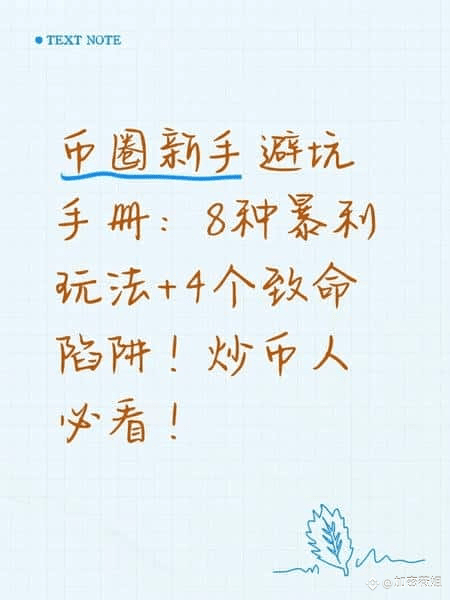 TEXT NOTE
币圈新手避坑
手册：8种暴利
玩法+4个致命
陷阱！炒币人
必看！
@加密薇姐